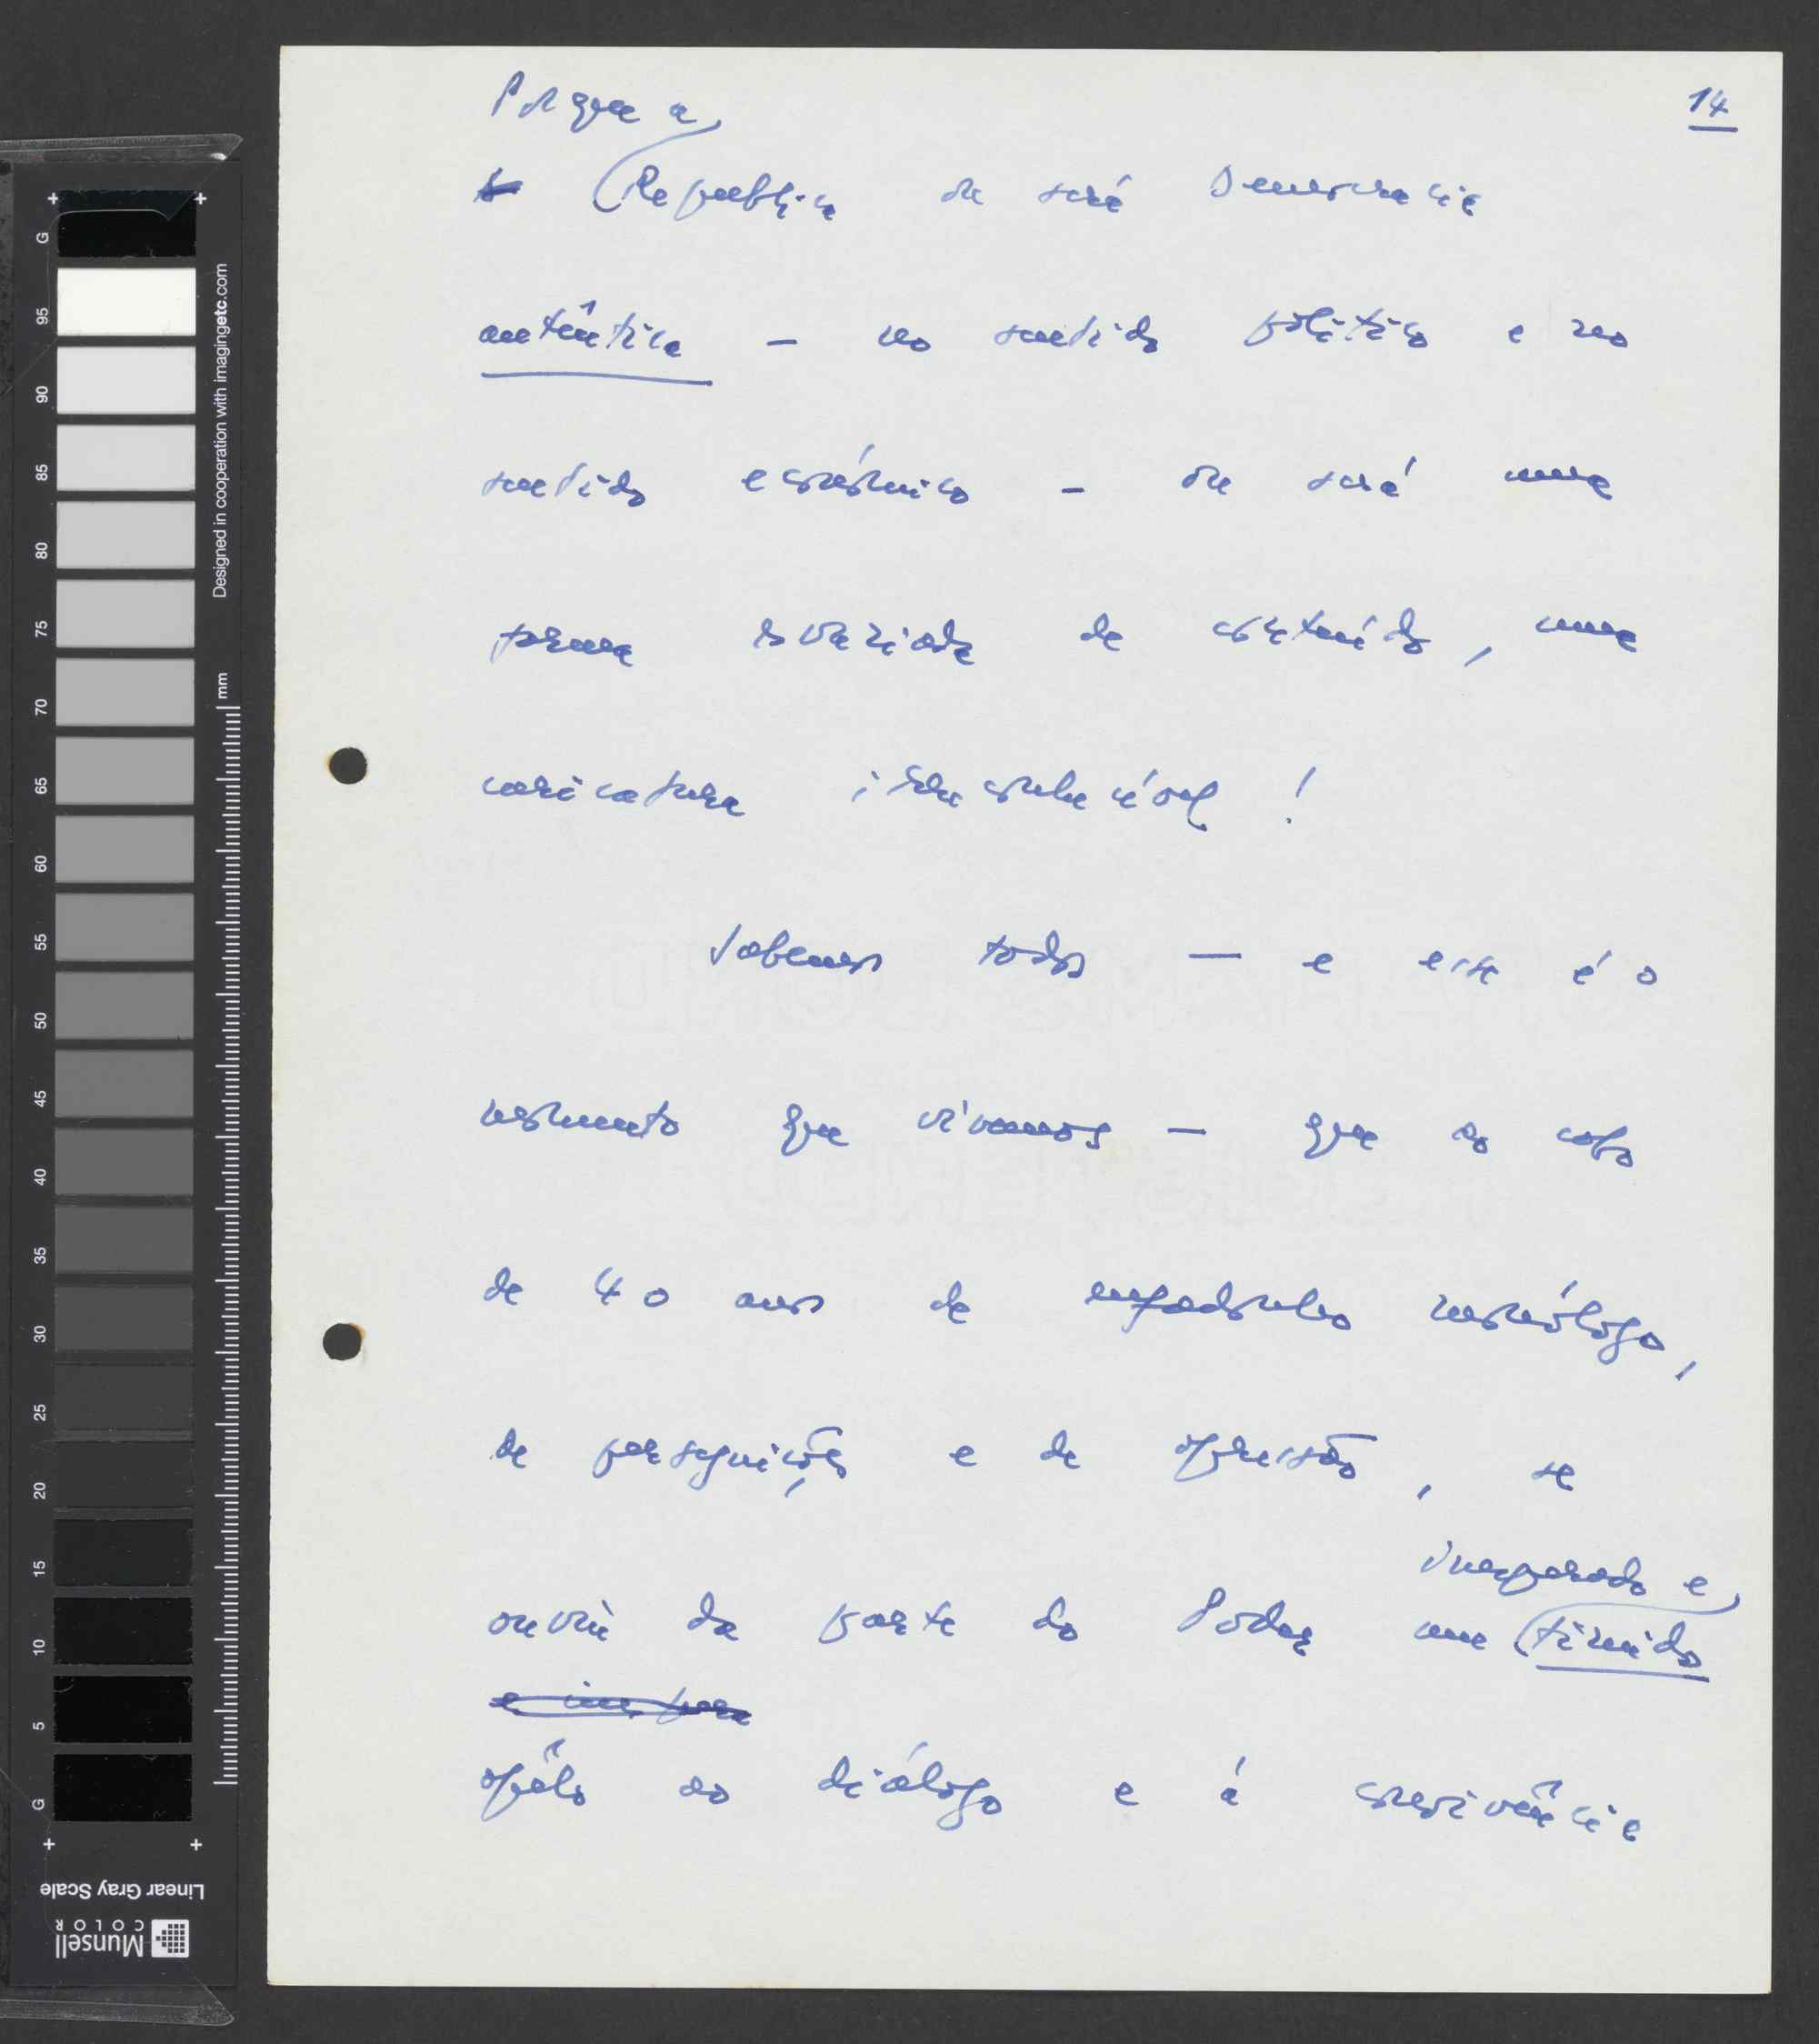 14
Porque a
República ou será Democracia
autêntica — no sentido político e no
sentido económico — ou será uma
forma esvaziada de conteúdo, uma
caricatura irreconhecível!
Sabemos todos — e esse é o
momento que vivemos — que ao cabo
de 40 anos de enfadonho monólogo,
de perseguições e de opressão, se
ouviu da parte do Poder um inesperado e tímido
apêlo ao diálogo e á convivência
G 95 90 85 80 75 70 65 60 55 50 45 40 35 30 25 20 15 10 5 G
Designed in cooperation with imagingetc.com
mm
Linear Gray Scale
Munsell
COLOR